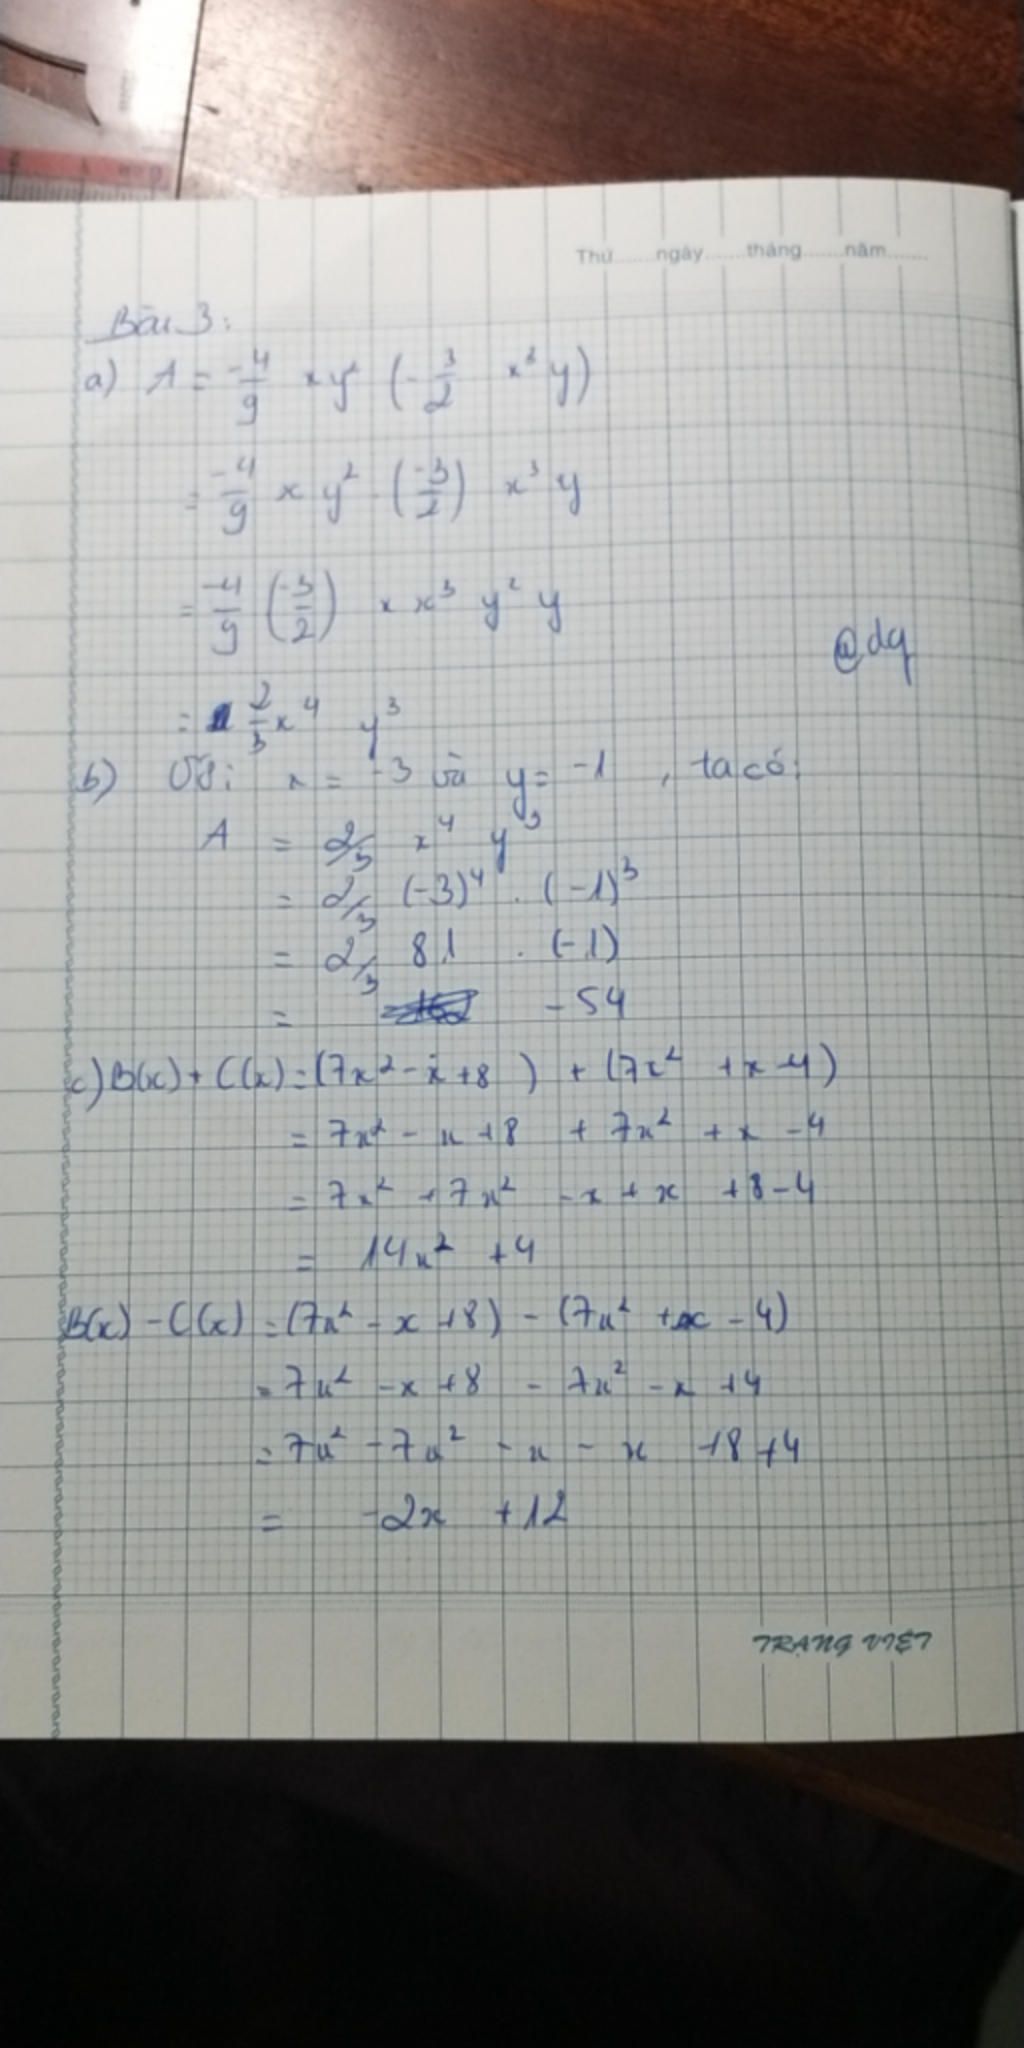 Thứ.......ngày.......tháng.......năm.......
Bài 3:
a) A = -4/9 xy² (-3/2 x³ y)
= -4/9 x y² . (-3/2) x³ y
= -4/9 (-3/2) x x³ y² y
= 2/3 x⁴ y³
@dq
b) Với x = -3 và y = -1 , ta có:
A = 2/3 x⁴ y³
= 2/3 (-3)⁴ . (-1)³
= 2/3 81 . (-1)
= -54
c) B(x) + C(x) = (7x² - x + 8 ) + (7x² + x - 4)
= 7x² - x + 8 + 7x² + x - 4
= 7x² + 7x² - x + x + 8 - 4
= 14x² + 4
B(x) - C(x) = (7x² - x + 8) - (7x² + x - 4)
= 7x² - x + 8 - 7x² - x + 4
= 7x² - 7x² - x - x + 8 + 4
= -2x + 12
TRANG VIỆT